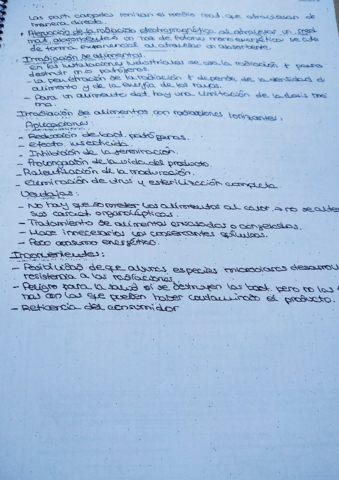 Las part cargadas ionizan el medio mat. que atraviesan de
manera directa.
• Atenuación de la radiación electromagnética al atravesar un
mat. absorbente
de forma exponencial al atravesar un absorbente.
• Irradiación de alimentos.
- En las instalaciones industriales se usa la radiación γ para
destruir mo patógenos.
- La penetración de la radiación γ depende de la densidad del
alimento y de la energía de los rayos.
- Para un alimento dat hay una limitación de la dosis
ma.
Irradiación de alimentos con radiaciones ionizantes:
Aplicaciones:
- Reducción de bact. patógenas.
- Efecto insecticida
- Inhibición de la germinación.
- Prolongación de la vida del producto
- Ralentización de la maduración.
- Eliminación de virus y esterilización completa
Ventajas:
- No hay que someter los alimentos al calor → no se alte
sus caract organolépticas.
- Tratamiento de alimentos envasados o congelados.
- Hace innecesarios los conservantes químicos.
- Poco consumo energético.
Inconvenientes:
- Posibilidad de que algunas especies microbianas desarrol
resistencia a las radiaciones.
- Peligro para la salud si se destruyen las bact. pero no las
nas con las que pueden haber contaminado el producto.
- Reticencia del consumidor